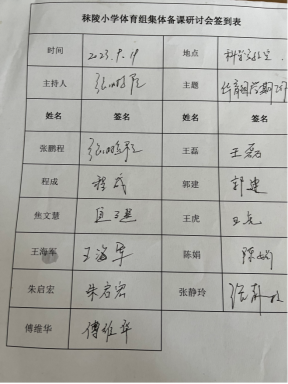 秣陵小学体育组集体备课研讨会签到表
时间 2023.9.19 地点
主持人 张鹏程 主题
姓名 签名 姓名 签名
张鹏程 张鹏程 王磊 王磊
程成 程成 郭建 郭建
焦文慧 王虎 王虎
王海军 王海军 陈娟 陈娟
朱启宏 朱启宏 张静玲 张静玲
傅维华 傅维华